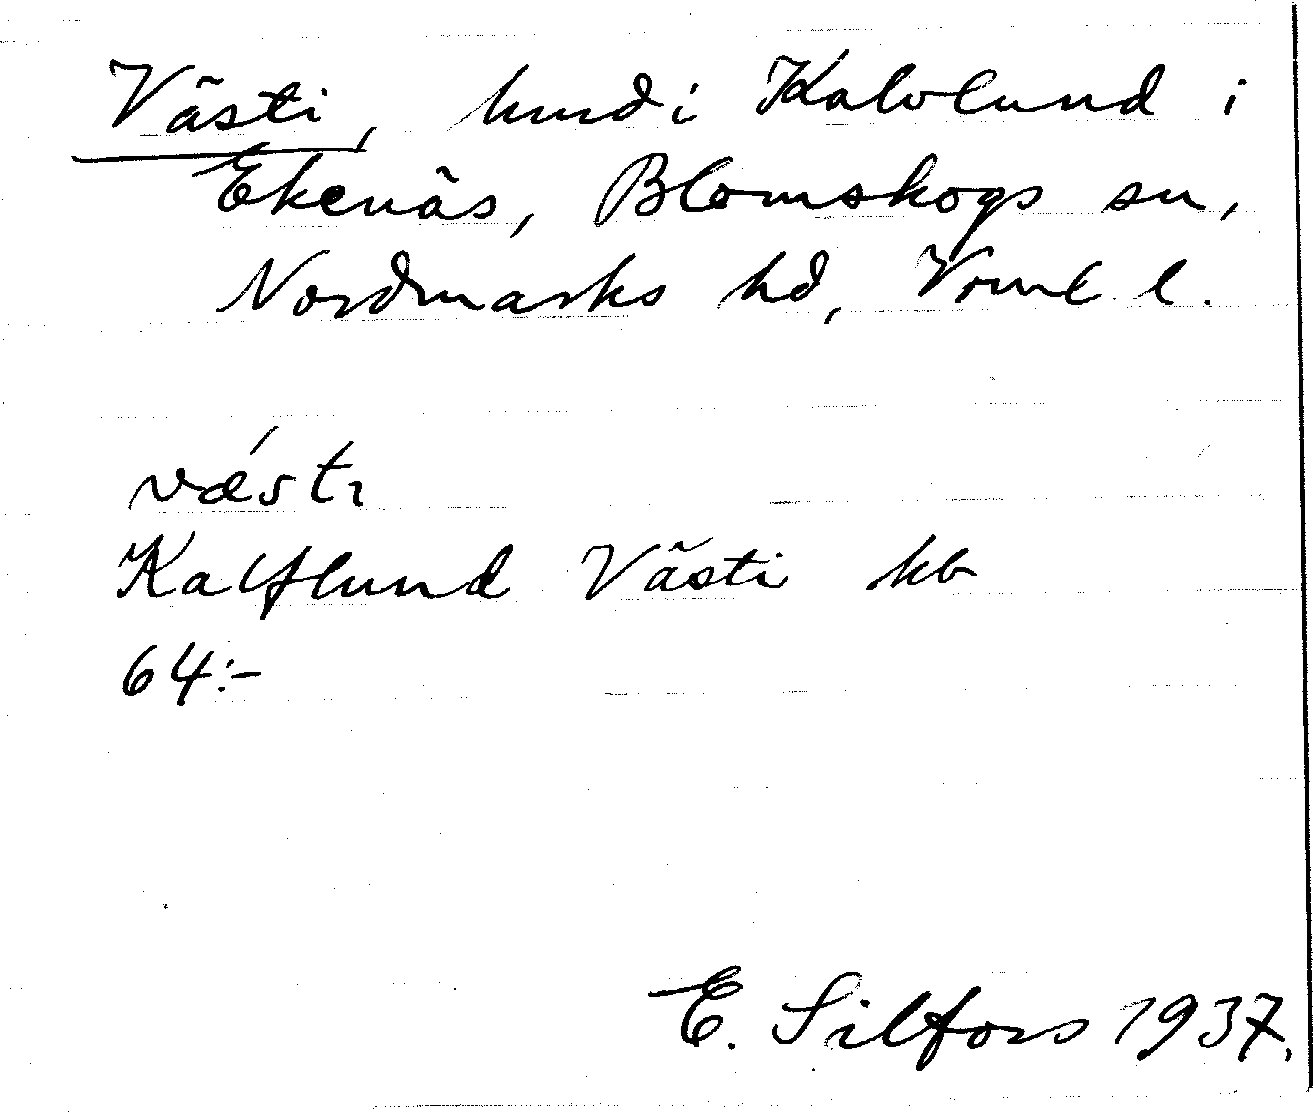 Västi, hmd i Kalvlund i
Ekenäs, Blomskogs sn,
Nordmarks hd, Vrml l.
vǽstɪ
Kalflund Västi kb
64:-
E. Silfors 1937.